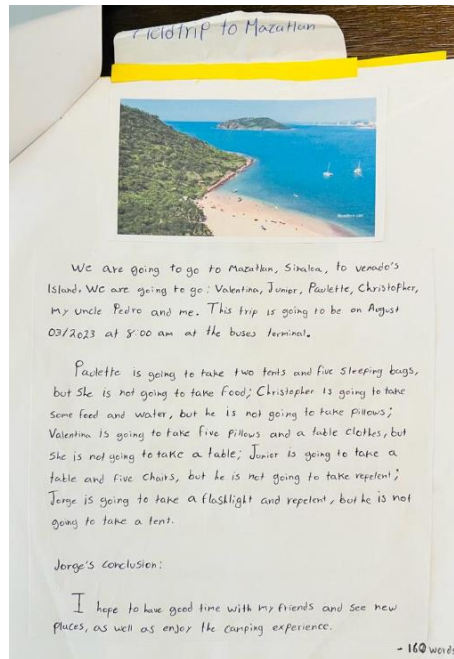 Fieldtrip to Mazatlan
We are going to go to Mazatlan, Sinaloa, to venado's
Island. We are going to go: Valentina, Junior, Paulette, Christopher,
my uncle Pedro and me. This trip is going to be on August
03/2023 at 8:00 am at the buses terminal.
Paulette is going to take two tents and five sleeping bags,
but she is not going to take food; Christopher is going to take
some food and water, but he is not going to take pillows;
Valentina is going to take five pillows and a table clothes, but
she is not going to take a table; Junior is going to take a
table and five chairs, but he is not going to take repelent;
Jorge is going to take a flashlight and repelent, but he is not
going to take a tent.
Jorge's conclusion:
I hope to have good time with my friends and see new
places, as well as enjoy the camping experience.
- 160 words